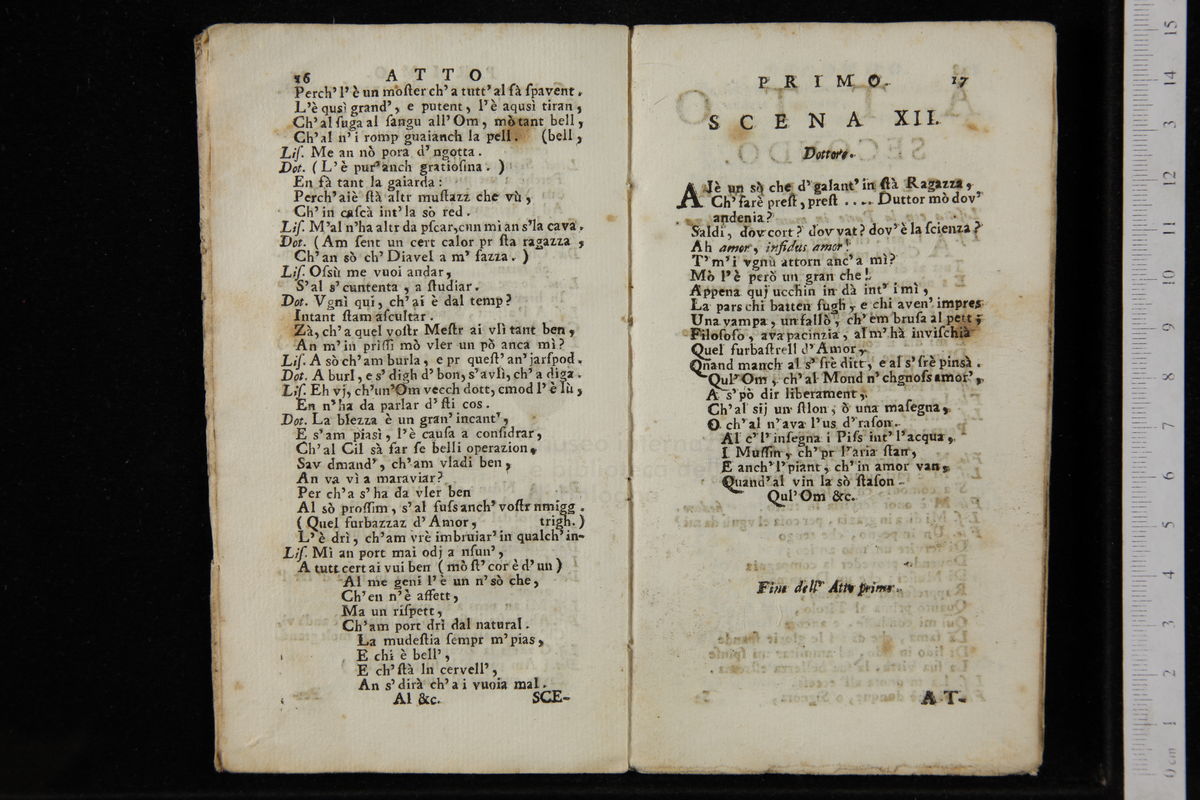 16 ATTO
Perch' l' è un moſter ch' a tutt' al fà ſpavent.
L'è qusì grand', e putent, l'è aqusì tiran,
Ch' al ſuga al ſangu all' Om, mò tant bell,
Ch' al n' i romp guaianch la pell. (bell,
Liſ. Me an nò pora d' ngotta.
Dot. (L' è pur' anch gratioſina.)
En fà tant la gaiarda:
Perch' aiè ſtà altr muſtazz che vù,
Ch' in caſcà int' la sò red.
Liſ. M'al n'ha altr da pſcar, cnn mi an s'la cava.
Dot. (Am ſent un cert calor pr ſta ragazza,
Ch' an sò ch' Diavel a m' fazza.)
Liſ. Oſsù me vuoi andar,
S' al s' cuntenta, a ſtudiar.
Dot. Vgnì quì, ch' ai è dal temp?
Intant ſtam aſcultar.
Zà, ch' a quel voſtr Meſtr ai vlì tant ben,
An m' in priſſi mò vler un pò anca mì?
Liſ. A sò ch' am burla, e pr queſt' an' jarſpod.
Dot. A burl, e s' digh d' bon, s'avlì, ch' a diga.
Liſ. Eh vj, ch'un' Om vecch dott, cmod l' è lù,
En n'ha da parlar d' ſti cos.
Dot. La blezza è un gran' incant',
E s'am piasì, l'è cauſa a conſidrar,
Ch' al Cil sà far ſe belli operazion,
Sav dmand', ch'am vladi ben,
An va vì a maraviar?
Per ch'a s' ha da vler ben
Al sò proſſim, s'al fuſs anch' voſtr nmigg.
(Quel furbazzaz d' Amor, trigh.)
L' è drì, ch'am vrè imbruiar' in qualch' in-
Liſ. Mì an port mai odj a nſun',
A tutt cert ai vui ben (mò ſt' cor è d' un)
Al me geni l' è un n' sò che,
Ch' en n' è affett,
Ma un riſpett,
Ch' am port drì dal natural.
La mudeſtia ſempr m' pias,
E chi è bell',
E ch' ſtà In cervell',
An s' dirà ch' a i vuoia mal.
Al &c. SCE-
PRIMO. 17
SCENA XII.
Dottore.
AIè un sò che d' galant' in ſtà Ragazza,
Ch' farè preſt, preſt .... Duttor mò dov'
andenia?
Saldi, dov cort? dov vat? dov' è la ſcienza?
Ah amor, infidus amor!
T' m' i vgnù attorn anc' a mì?
Mò l' è però un gran che!
Appena quj ucchin in dà int' i mì,
La pars chi batten fugh, e chi aven' impres
Una vampa, un fallò, ch' em bruſa al pett;
Filoſofo, ava pacinzia, al m' hà inviſchià
Quel furbaſtrell d' Amor,
Quand manch al s' frè ditt, e al s' frè pinsà.
Qul' Om, ch' al Mond n' chgnoſs amor',
A s' pò dir liberament,
Ch' al sij un ſtlon, ò una maſegna,
O ch' al n' ava l' us d' raſon.
Al c' l' inſegna i Piſs int' l'acqua,
I Muſſin, ch' pr l'aria ſtan,
E anch' l' piant, ch' in amor van,
Quand' al vin la sò ſtaſon.
Qul' Om &c.
Fine dell' Atto primo.
AT-